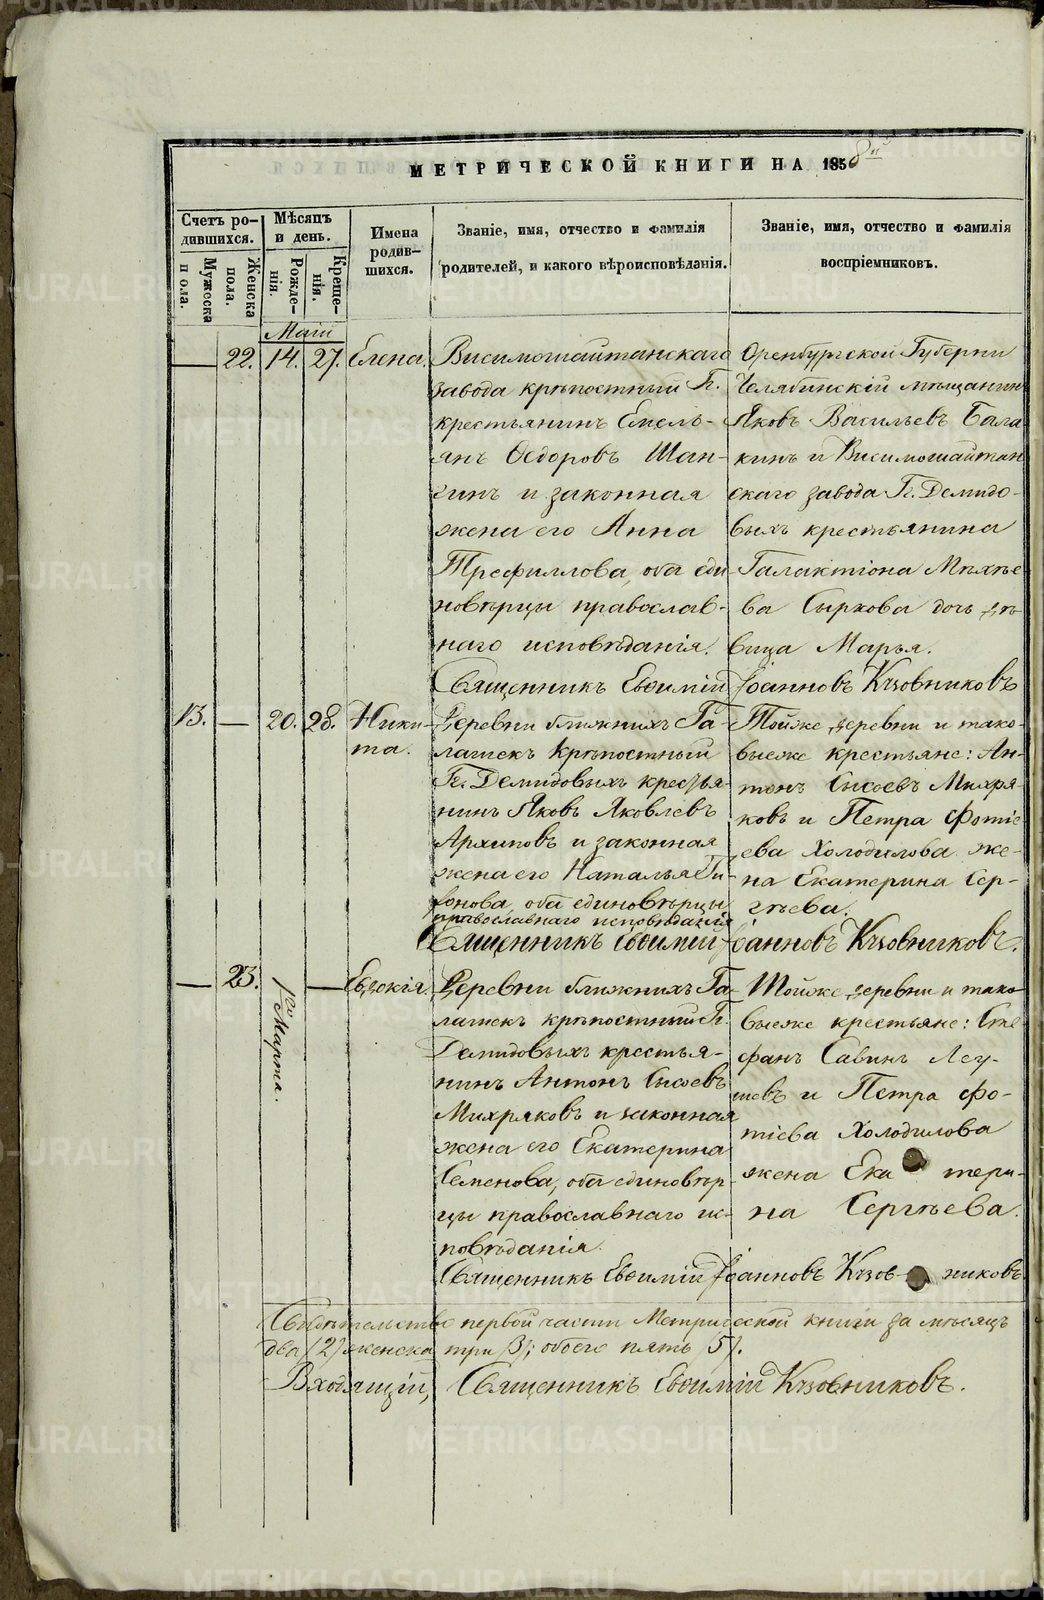 МЕТРИЧЕСКОЙ КНИГИ НА 185
Счетъ ро-
дившихся.
Мужеска
пола.
Женска
пола.
Мѣсяцъ
и день.
Рожде-
нія.
Креще-
нія.
Имена
родив-
шихся.
Званіе, имя, отчество и фамилія
родителей, и какого вѣроисповѣданія.
Званіе, имя, отчество и фамилія
воспріемниковъ.
Маія
22. 14. 27. Елена.
Висимошайтанскаго
завода крѣпостный Гг.
крестьянинъ Емель-
янъ Ѳедоровъ Шан-
гинъ и законная
жена его Анна
Трефиллова, оба еди
новѣрцы православ-
наго исповѣданія.
Оренбургской Губерни
Челябинскій мѣщанинъ
Яковъ Васильевъ Бала
кинъ и Висимошайтан
скаго завода Гг. Демидо-
выхъ крестьянина
Галактіона
ва Сыркова дочь дѣ-
вица Марья.
Священникъ Евѳимій Іоанновъ Кузовниковъ
13. — 20. 28. Ники-
та.
Деревни ближнихъ Га-
лашекъ крѣпостный
Гг. Демидовыхъ крестья
нинъ Яковъ Яковлевъ
Архиповъ и законная
жена его Наталья Ти-
хонова, оба единовѣрцы
православнаго исповѣданія
Тойже деревни и тако-
выеже крестьяне: Ан-
тонъ Сысоевъ Михря-
ковъ и Петра Фотіе
ева Холодилова же-
на Екатерина Сер-
гѣева.
Священникъ Евѳимій Іоанновъ Кузовниковъ.
— 23. Марта. — Евдокія.
Деревни ближнихъ Га-
лашекъ крѣпостный Гг.
Демидовыхъ крестья-
нинъ Антонъ Сысоевъ
Михряковъ и законная
жена его Екатерина
Семенова, оба единовѣр-
цы православнаго ис-
повѣданія.
Тойже деревни и тако
выеже крестьяне: Сте
фанъ Савинъ
и Петра Фо-
тіева Холодилова
жена Ека тери-
на Сергѣева.
Священникъ Евѳимій Іоанновъ Кузов- никовъ
первой части Метрической книги за мѣсяцъ
два (2) женска три 3); обоего пять 5).
Священникъ Евѳимій Кузовниковъ.
METRIKI.GASO-URAL.RU